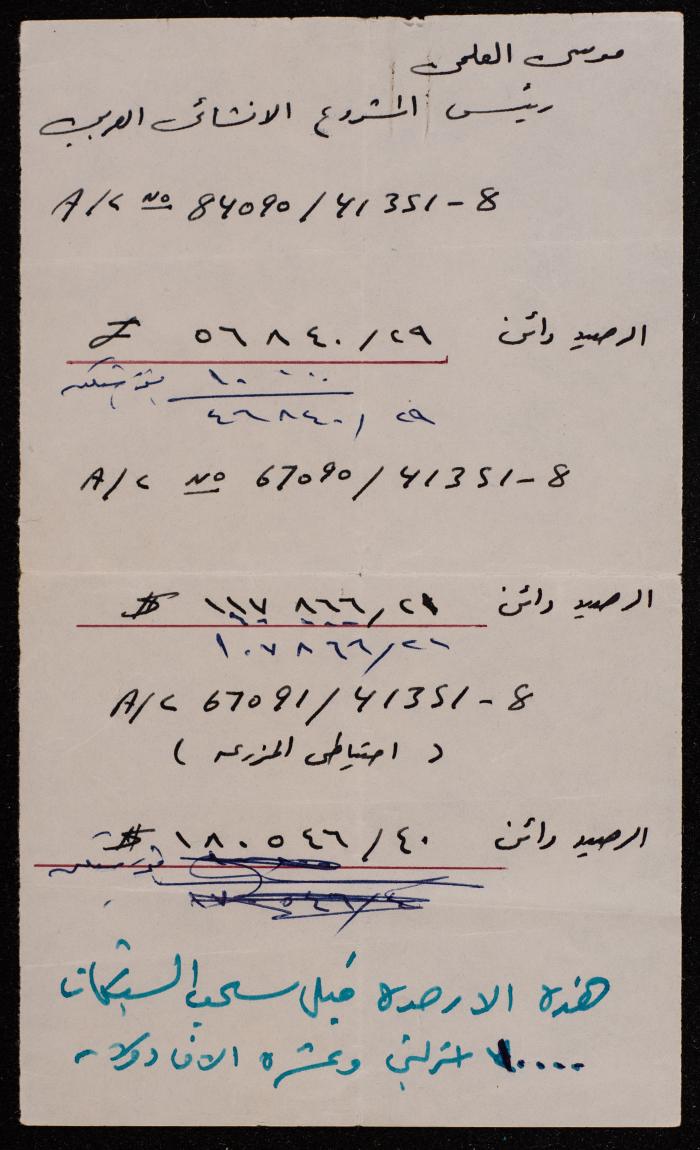 موسى العلمي
رئيس المشروع الانشائى العربي
A/C No 84090/41351-8
الرصيد دائن ٥٦٨٤٠/٢٩ £
١٠٠٠٠
٤٦٨٤٠/٢٩
A/C No 67090/41351-8
الرصيد دائن ١١٧٨٦٦/٢١ $
١٠٧٨٦٦/٢١
A/C 67091/41351-8
( احتياطى المزرعه )
الرصيد دائن ١٨٠٥٤٦/٤٠ $
هذه الارصدة قبل سحب الشيكات
١٠٠٠٠ استرليني وعشره الاف دولار